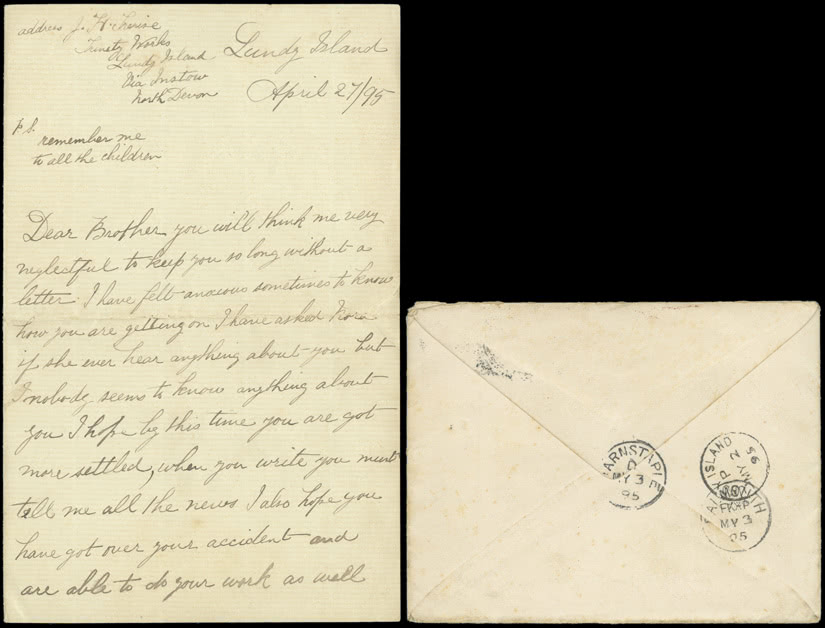 address J. H.
Trinity Works
Lundy Island
Via Instow
North Devon
Lundy Island
April 27/95
P.S.
remember me
to all the children
Dear Brother you will think me very
neglectful to keep you so long without a
letter. I have felt anxious sometimes to know
how you are getting on I have asked
if she ever hear anything about you but
nobody seems to know anything about
you I hope by this time you are got
more settled, when you write you must
tell me all the news I also hope you
have got over your accident and
are able to do your work as well
ARNSTAPL
D
MY 3
95
ISLAND
MY 2
95
MY 3
95